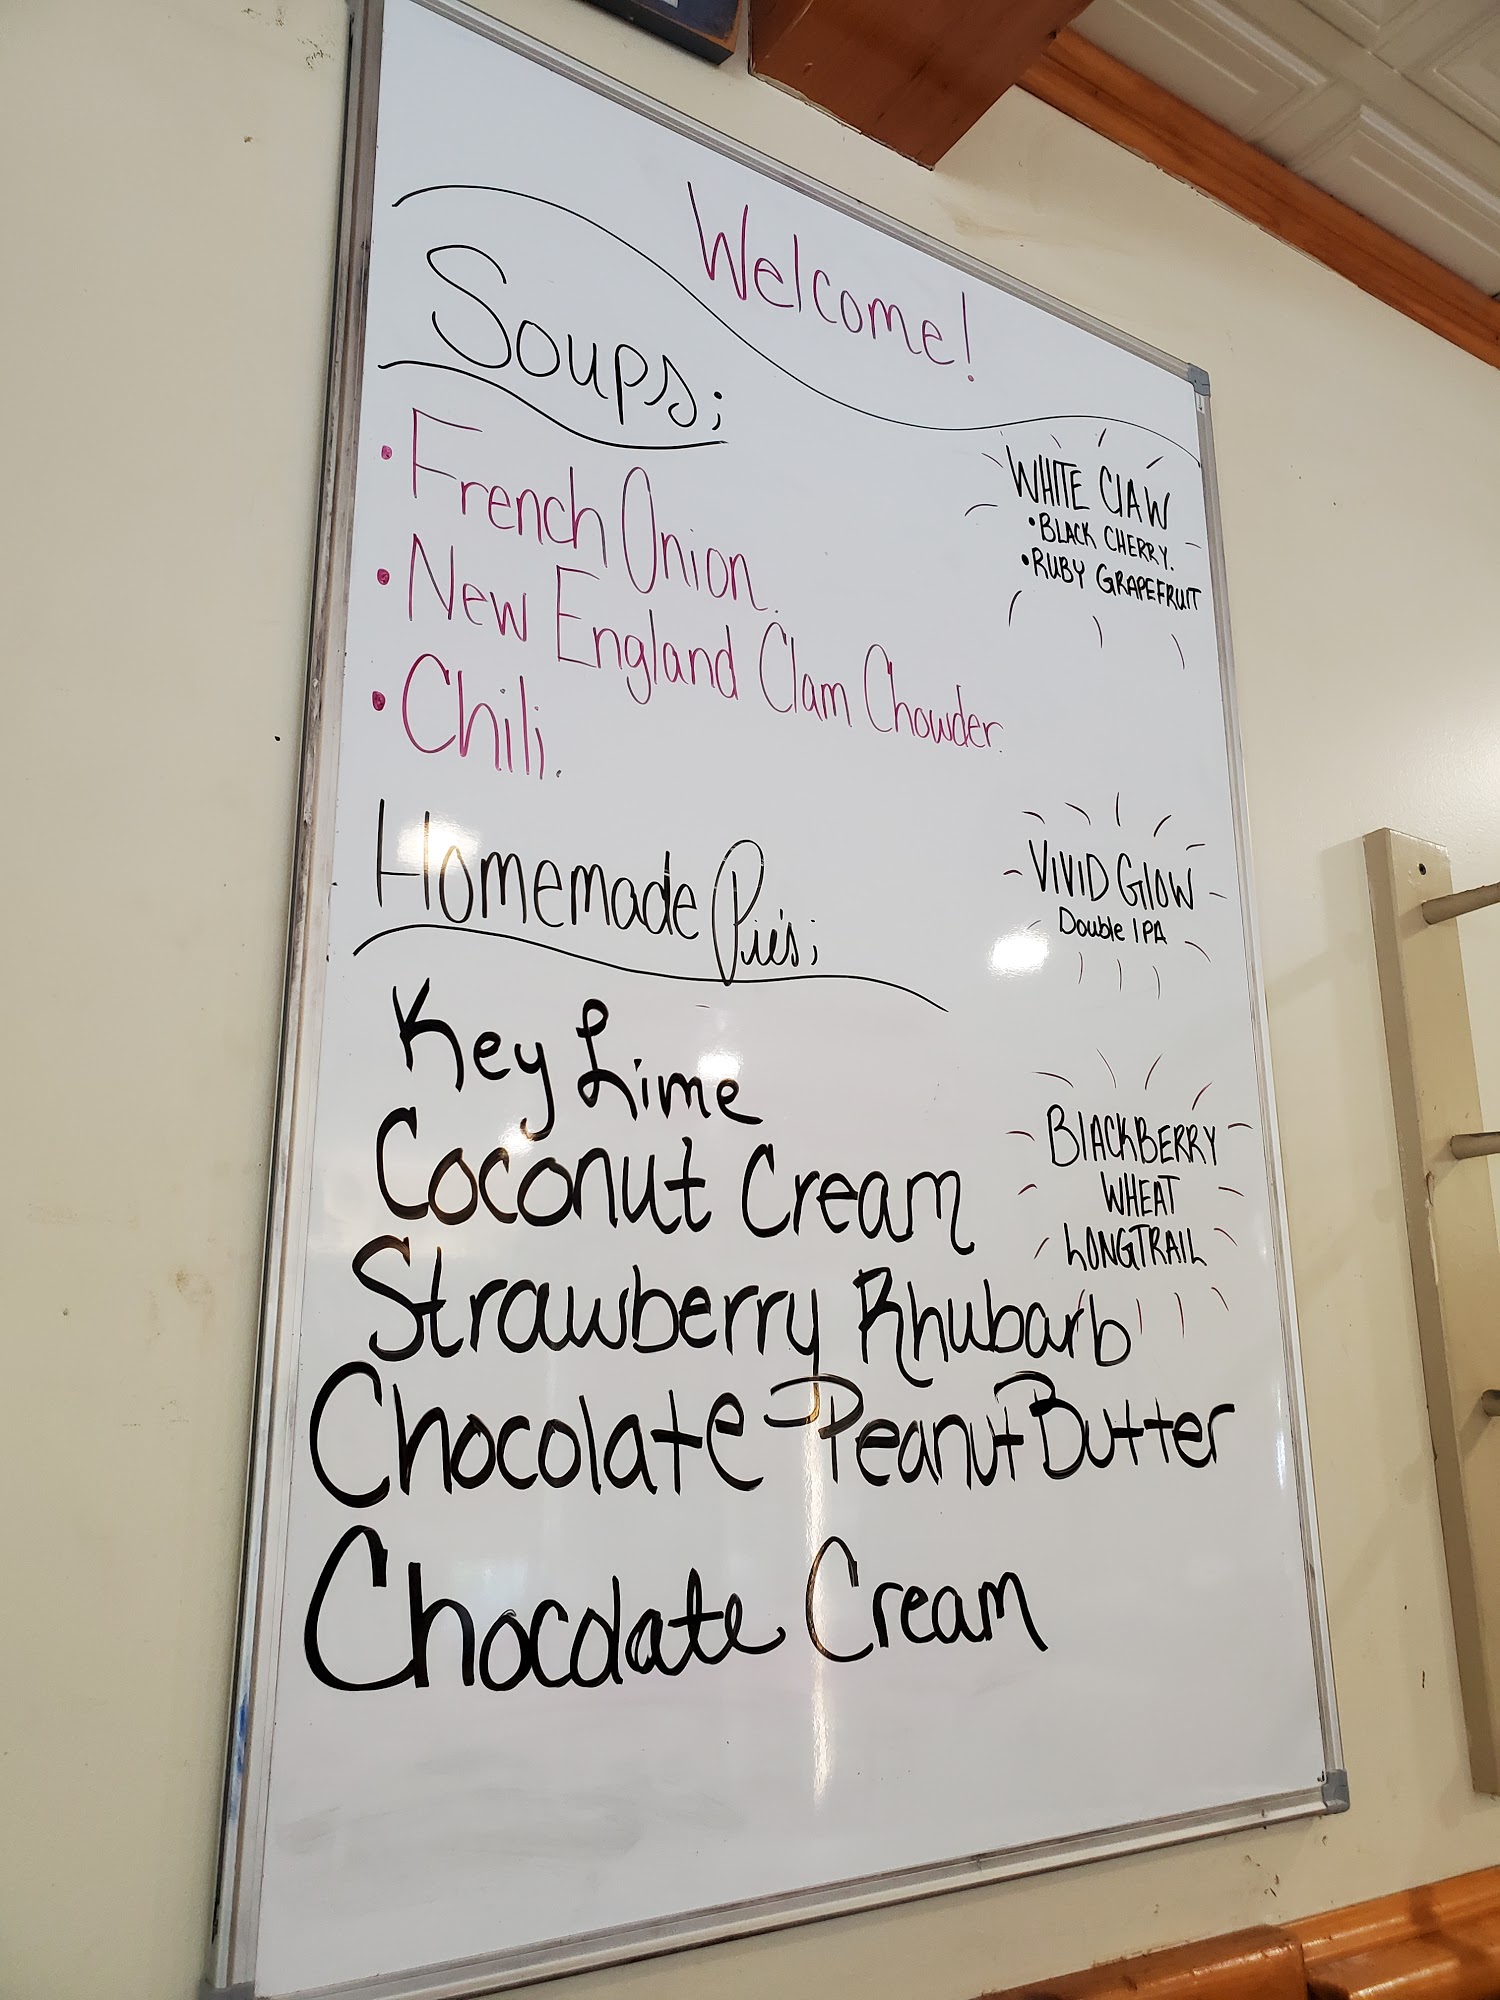 Welcome!
Soups;
• French Onion.
• New England Clam Chowder.
• Chili.
Homemade Pie's;
Key Lime
Coconut Cream
Strawberry Rhubarb
Chocolate Peanut Butter
Chocolate Cream
WHITE ClAW
• BLACK CHERRY.
• RUBY GRAPEFRUIT
VIVID GlOW
Double IPA
BlACKBERRY
WHEAT
LONGTRAIL